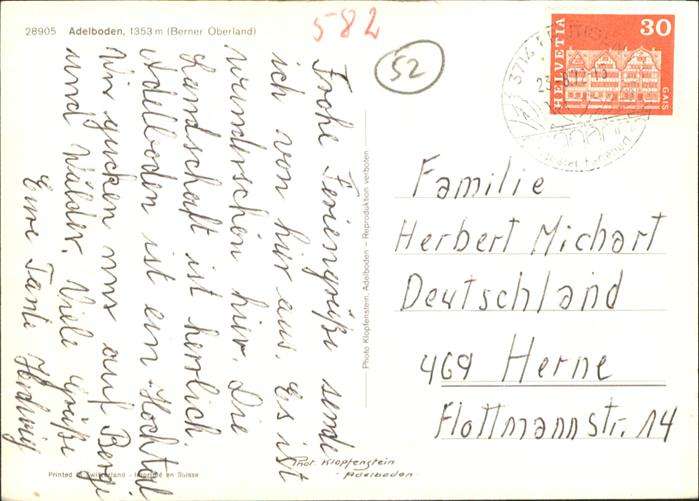 28905 Adelboden, 1353 m (Berner Oberland)
582
52
HELVETIA
30
GAIS
3714
Frohe Feriengrüße sende
ich von hier aus. Es ist
wunderschön hier. Die
Landschaft ist herrlich
Adelboden ist ein Hochtal
Wir gucken nur auf Berge
und Wälder. Viele Grüße
Eure Tante Hedwig
Photo Klopfenstein, Adelboden – Reproduktion verboten
Familie
Herbert Michart
Deutschland
469 Herne
Flottmannstr. 14
Phot Klopfenstein
Adelboden
Printed in Switzerland - Imprimé en Suisse